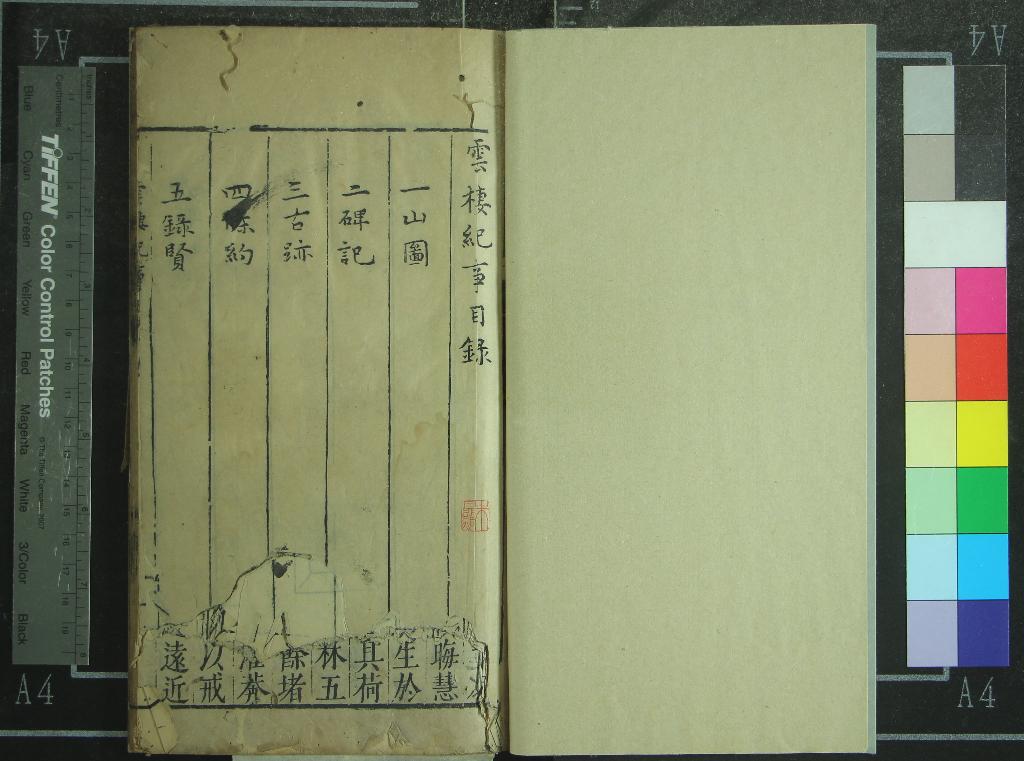 雲棲紀事目錄
一山圖
二碑記
三古跡
四條約
五錄賢
晦慧
生於
真荷
林五
餘堵
以戒
遠近
TIFFEN Color Control Patches
© The Tiffen Company, 2007
Centimetres
Inches
Blue Cyan Green Yellow Red Magenta White 3/Color Black
A4
A4
A4
A4